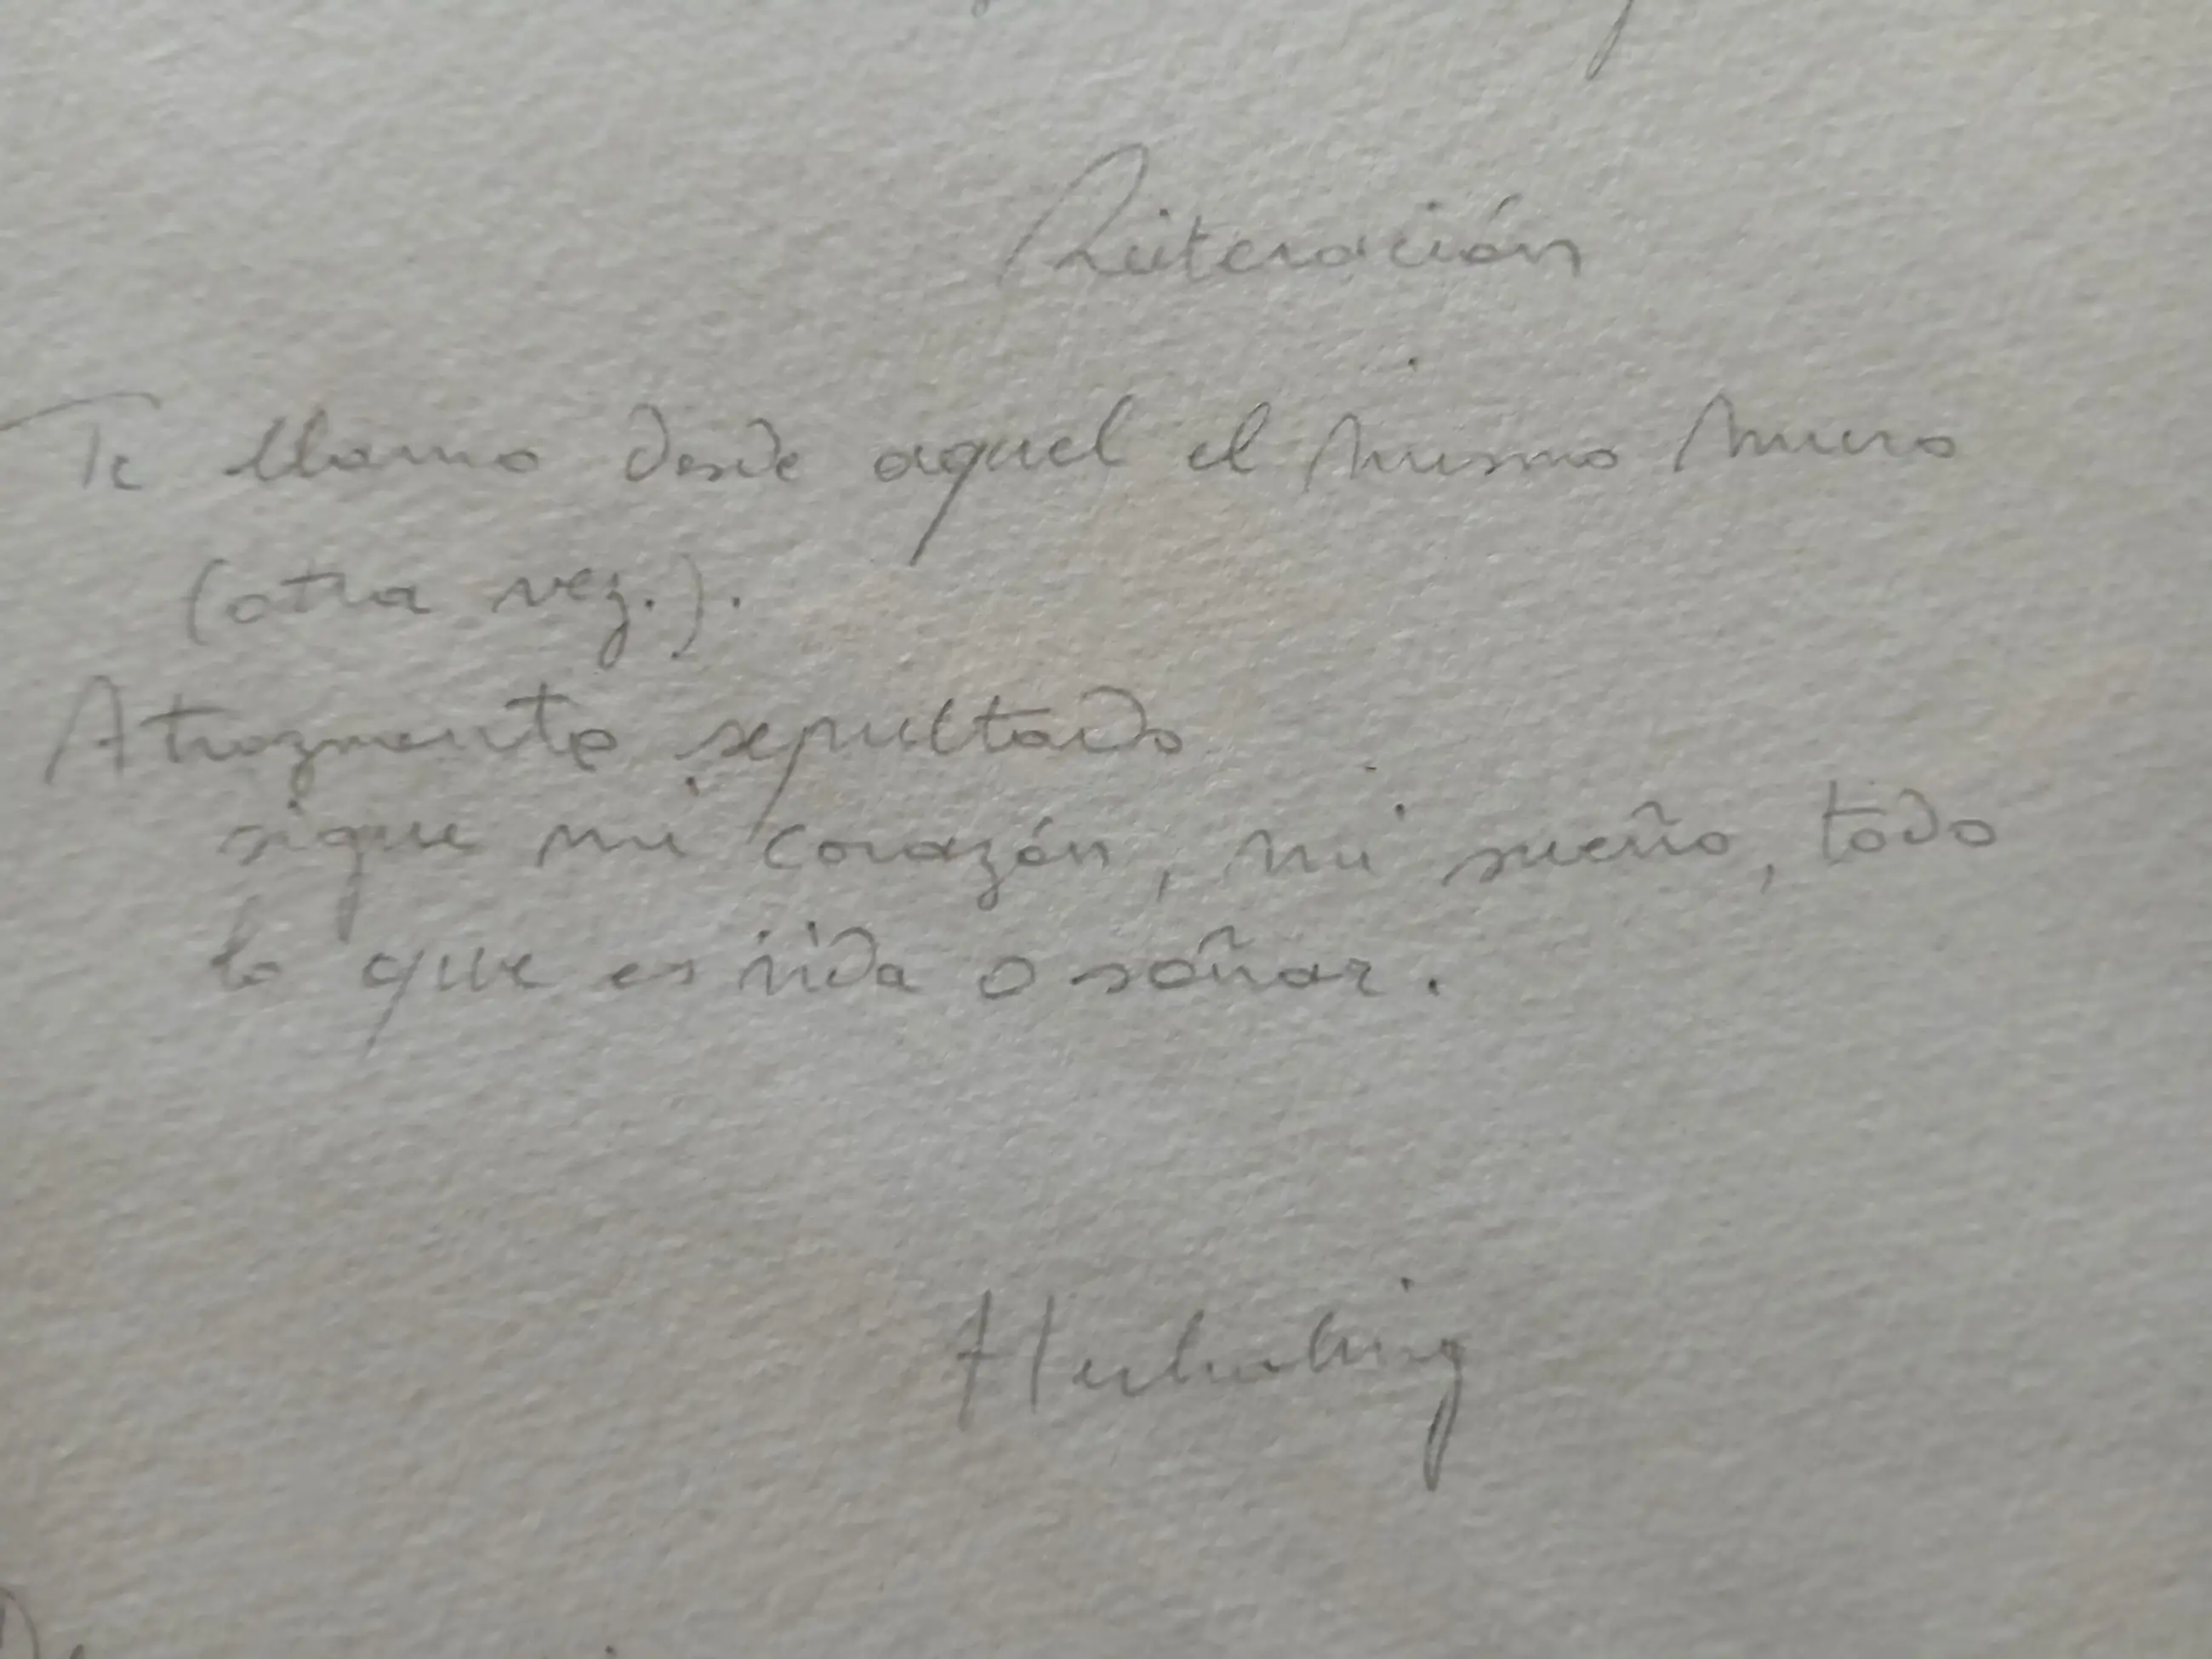 Reiteración
Te llamo desde aquel el mismo muro
(otra vez.).
Atrozmente sepultado
sigue mi corazón, mi sueño, todo
lo que es vida o soñar.